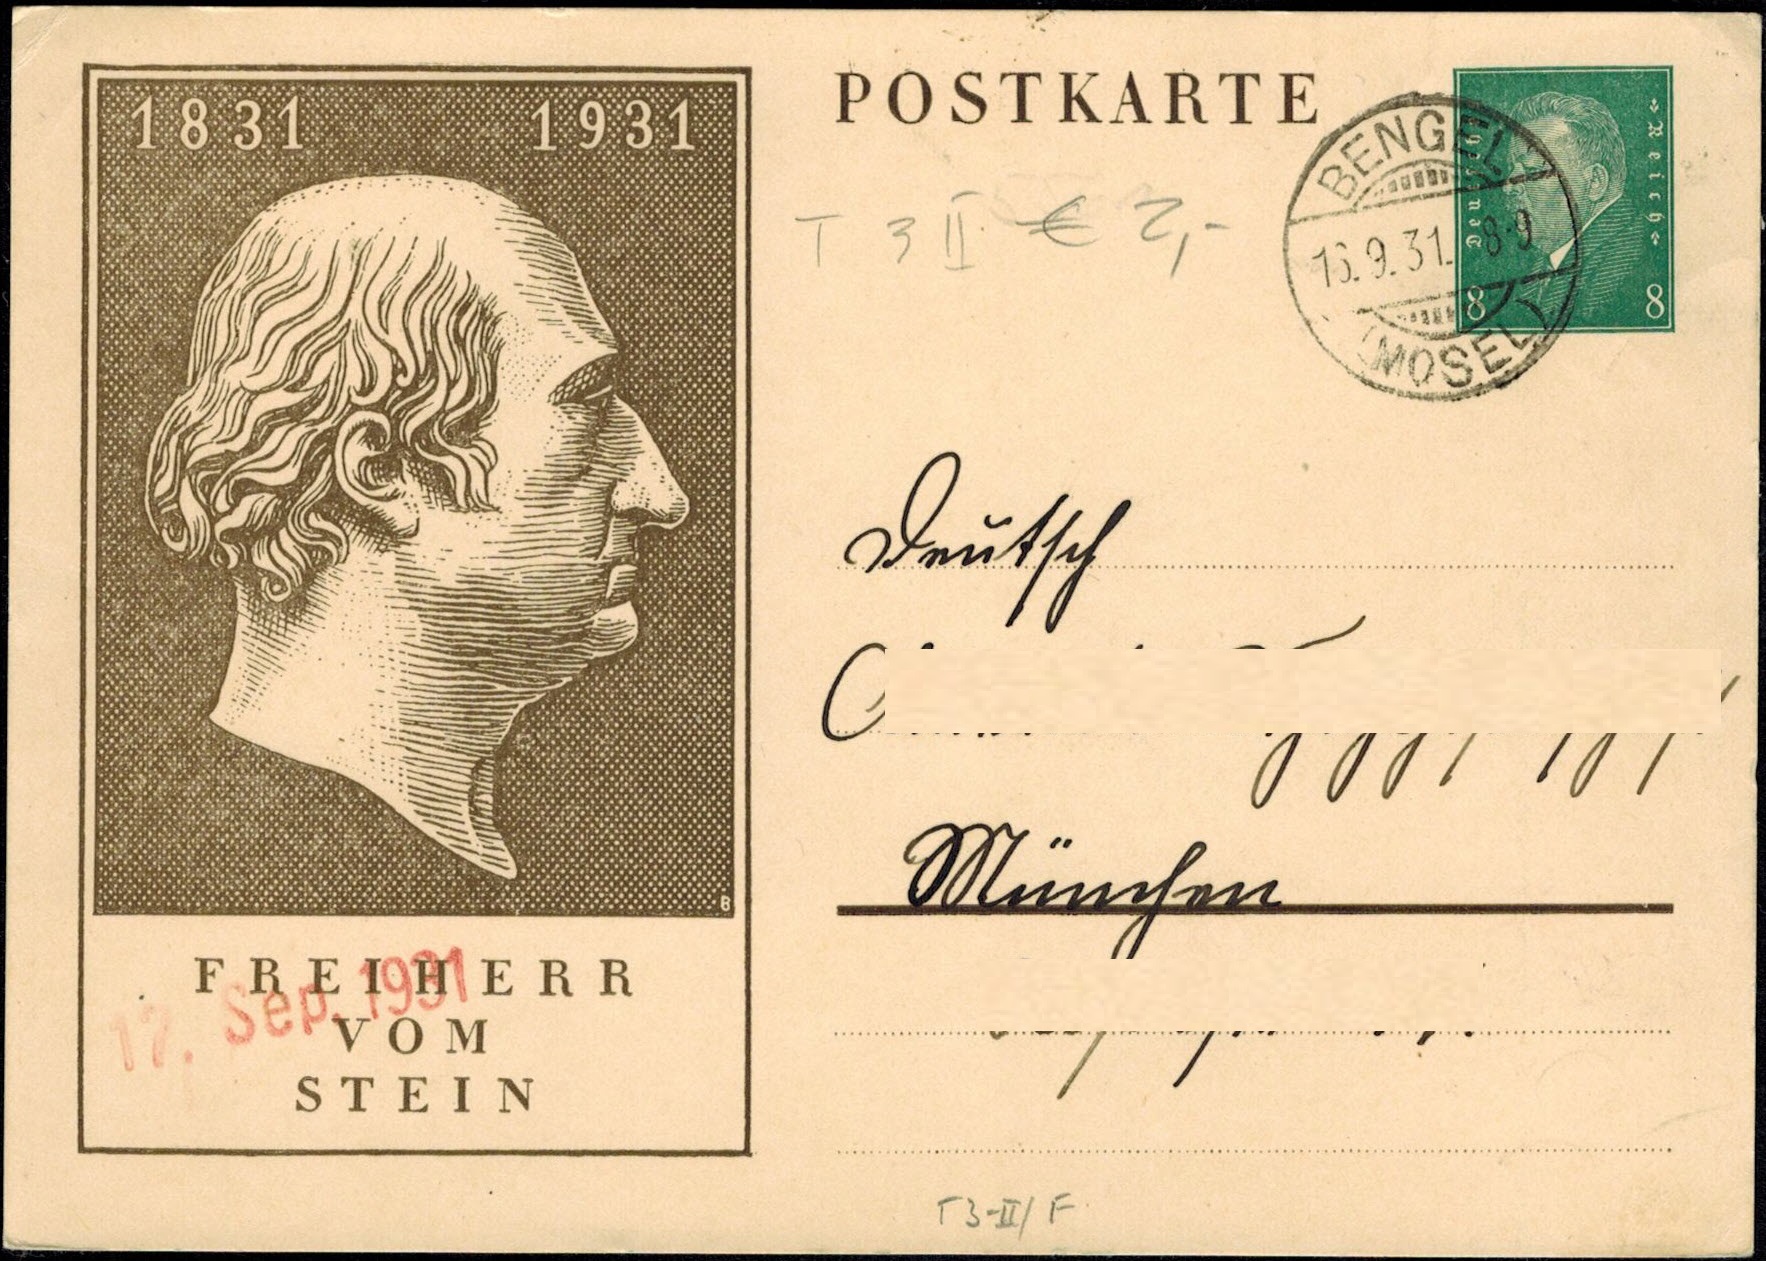 1831 1931
POSTKARTE
Deutsches Reich
8 8
BENGEL
16.9.31. 8-9
(MOSEL)
T 3 II € 2,-
Deutsch
München
FREIHERR
VOM
STEIN
17. Sep. 1931
B
T3-II/F